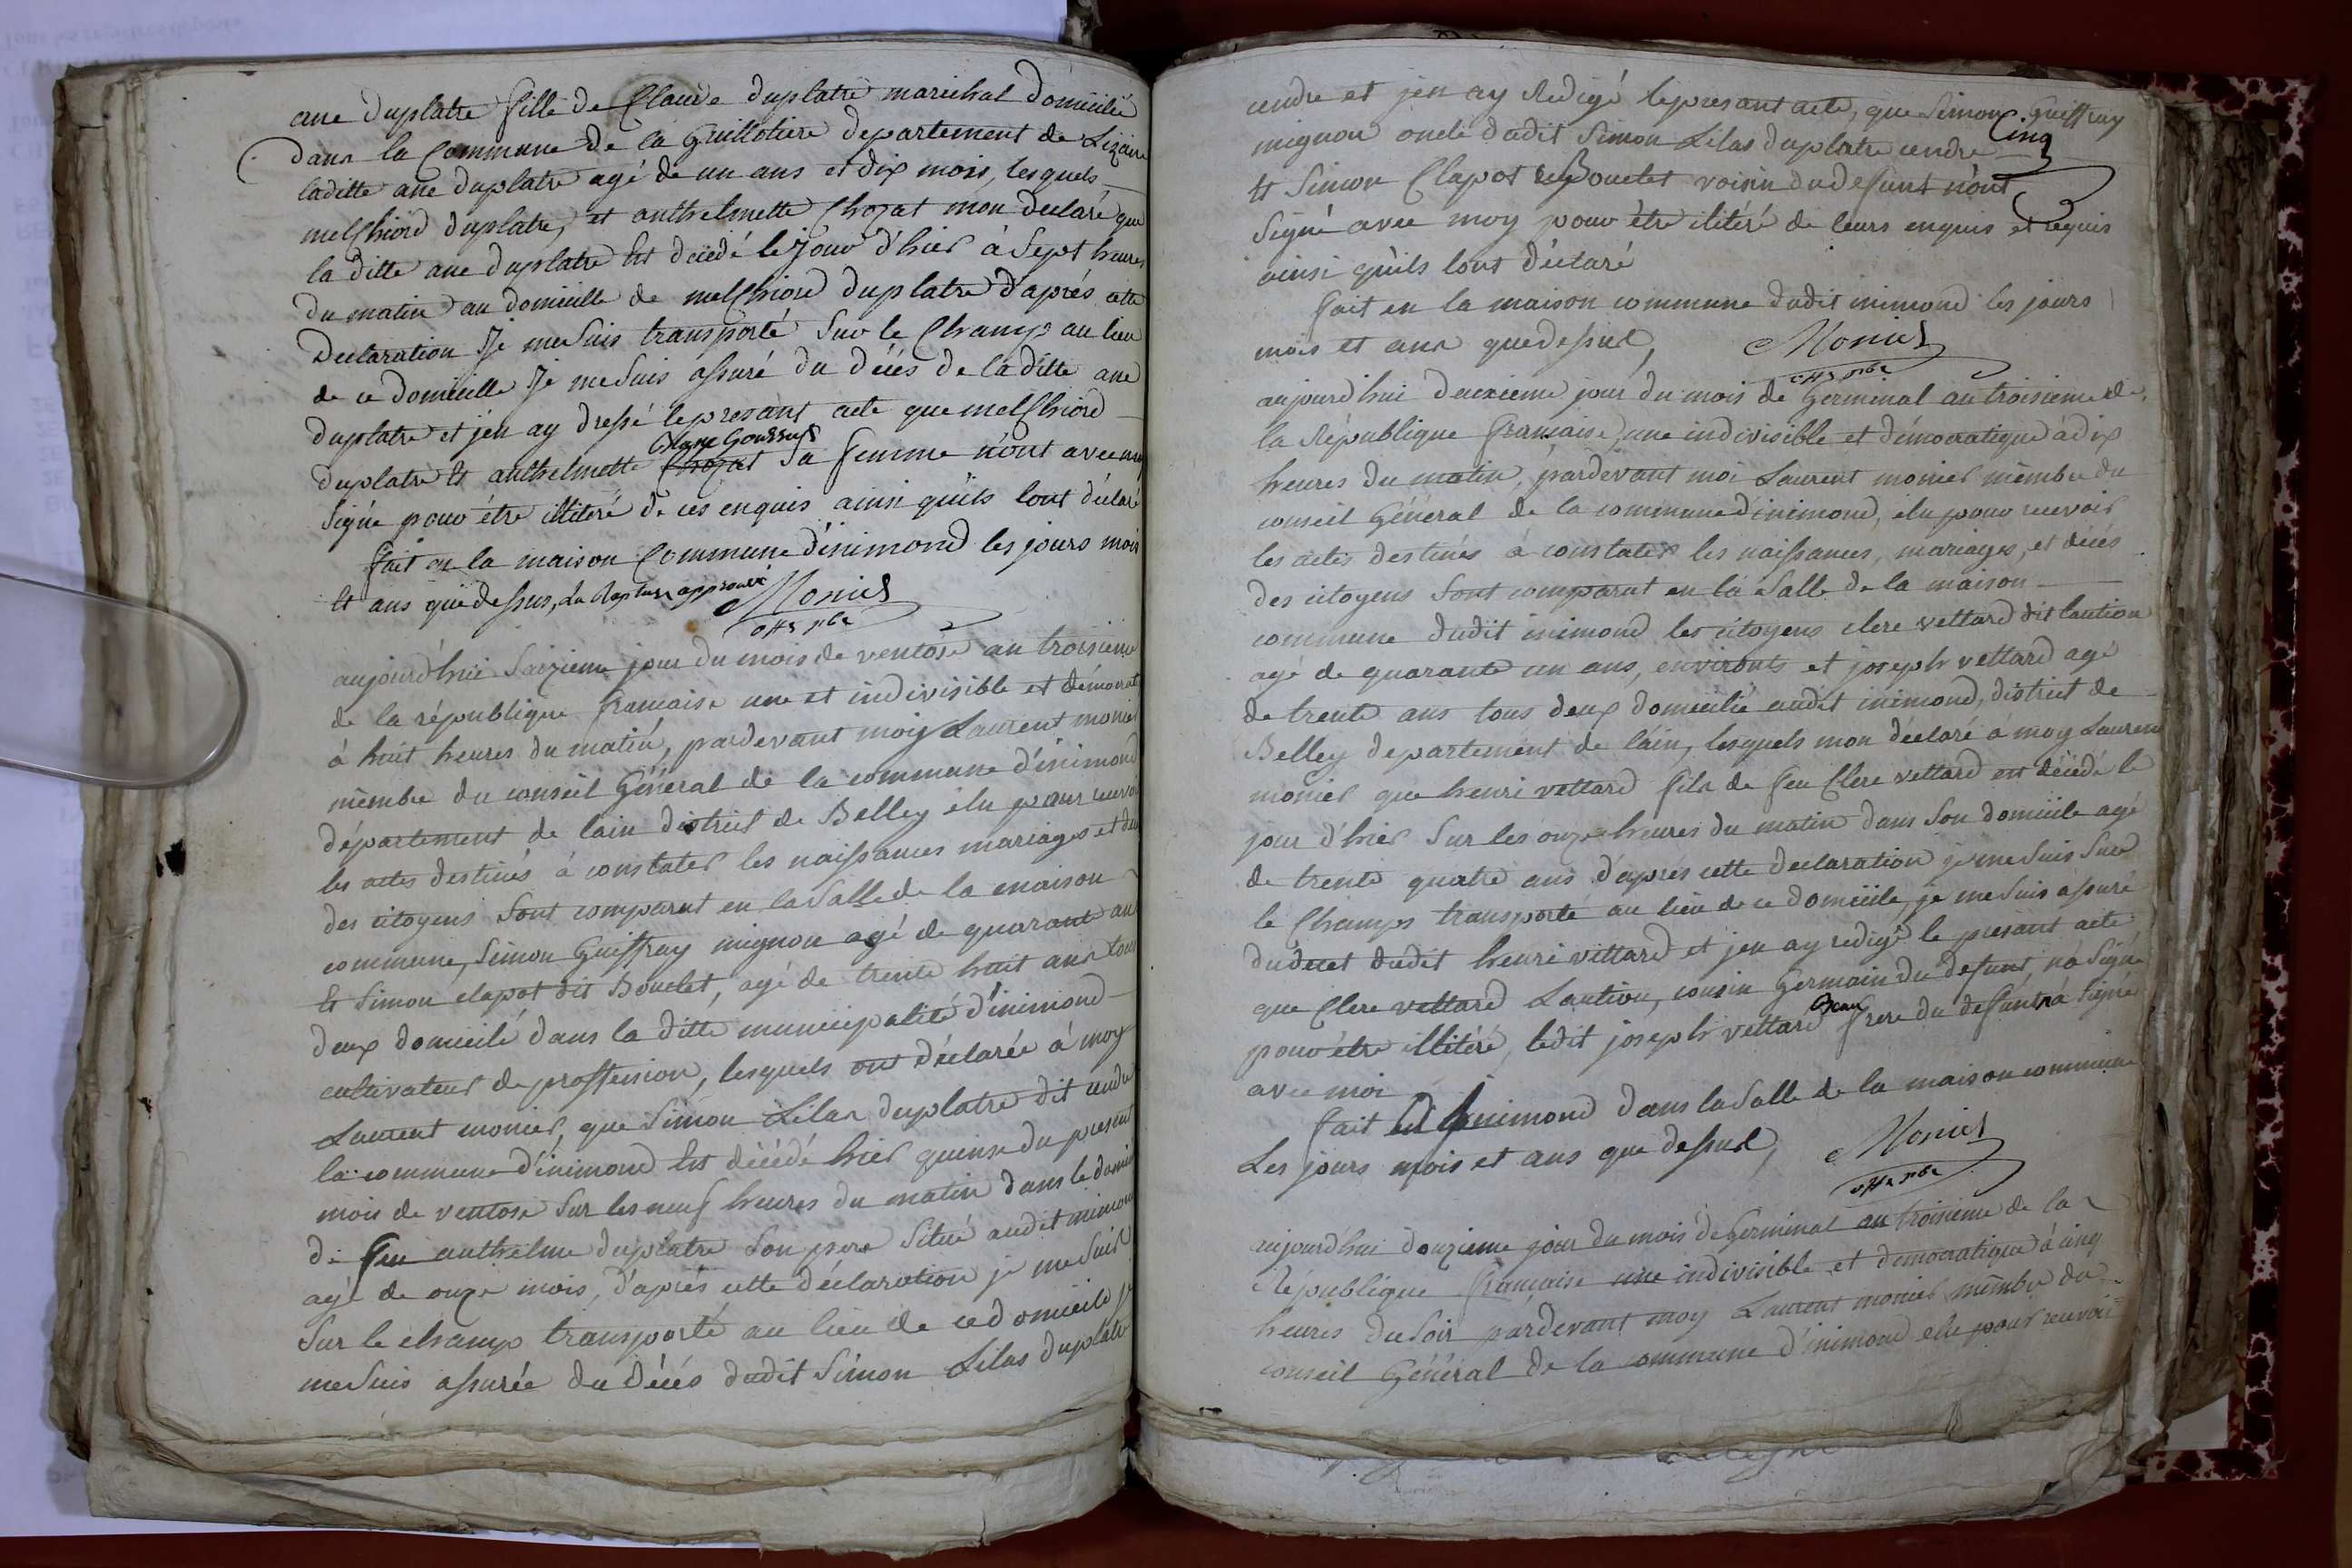 ane duplatre fille de Claude duplatre marechal domicilié
dans la Commune de la Guillotiere departement de Lizaire
laditte ane duplatre agé de un ans et dix mois, lesquels
melchiord duplatre, et anthelmette Chozat mon declaré que
la ditte ane duplatre Est décédé le jour d'hier à Sept heures
du matin au domicille de melchiord duplatre d'aprés cette
Declaration Je me Suis transporté Sur le Champs au lieu
de ce domicille Je me Suis assuré du décés de la ditte ane
duplatre et j'en ay dressé le presant acte que melchiord
duplatre Et anthelmette Chozat Sa femme n'ont avec moy
Signé pour étre illiteré de ces enquis ainsi qu'ils lont déclaré
fait en la maison Commune d'inimond les jours mois
Et ans que dessus, La Rapture approuvé Monier
off. pbc
aujourd'hui Saizieme jour du mois de ventose an troisieme
de la république francaise une et indivisible et démocrat
à huit heures du matin, pardevant moy Laurent monier
membre du conseil Général de la commune d'inimond
département de lain district de Belley élu pour recevoir
les actes destinés à constater les naissances mariages et de
des citoyens Sont comparut en la Salle de la maison
commune, Simon Guiffray mignon agé de quarante ans
Et Simon clapot dit Bouclet, agé de trente huit ans tous
deux domicilé dans la ditte municipalité d'inimond
cultivateur de proffession, lesquels ont déclarée à moy
Laurent monier, que Simon Lilas duplatre dit cendre
la commune d'inimond Est décédé hier quinze du present
mois de ventose Sur les neuf heures du matin dans le domi
de feu anthelme duplatre Son pere Situé audit inimond
agé de onze mois, d'aprés cette déclaration je me Suis
Sur le champ transporté au lieu de ce domicile je
me Suis assurée du décés dudit Simon Lilas duplatre
cendre et jen ay Redigé le presant acte, que Simon Guiffray
mignon oncle dudit Simon Lilas duplatre cendre
Cinq
Et Simon Clapot Bouclet voisin du defunt n'ont
Signé avec moy pour être ilitéré de leurs enquis et requis
ainsi qu'ils lont déclaré
fait en la maison commune dudit inimond les jours
mois et ans que dessus, Monier
off. pbc
aujourd'hui deuxieme jour du mois de Germinal an troisieme de
la République francaise, une indivisible et démocratique à dix
heures du matin, pardevant moi Laurent monier membre du
conseil Général de la commune d'inimond, élu pour recevoir
les actes destinés à constater les naissances, mariages, et décés
des citoyens Sont comparut en la Salle de la maison
commune dudit inimond les citoyens clere vettard dit lantion
agé de quarante un ans, environts et joseph vettard agé
de trente ans tous deux domicilié audit inimond, district de
Belley departement de láin, lesquels mon déclaré à moy Laurent
monier que henri vettard fils de feu Clere vettard est décédé le
jour d'hier Sur les onze heures du matin dans Son domicile agé
de trente quatre ans d'aprés cette declaration je me Suis Sur
le Champs transporté au lieu de ce domicile, je me Suis assuré
du decet dudit henri vettard et jen ay redigé le presant acte
que Clere vettard Lantion, cousin Germain du defunt, n'a Signé
pour étre illitéré, ledit joseph vettard frere du defunt a Signé
avec moi
fait inimond dans la Salle de la maison commune
Les jours mois et ans que dessus, Monier
off. pbc
aujourd'hui douzieme jour du mois de Germinal an troisieme de la
République francaise une indivisible et democratique à cinq
heures du Soir pardevant moy Laurent monier membre du
conseil Général de la commune d'inimond elu pour recevoir